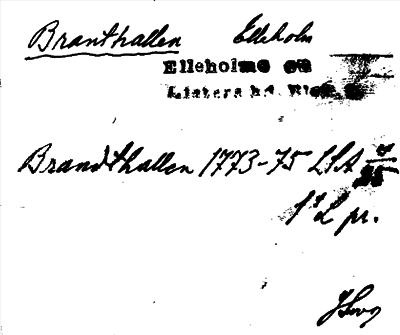 Branthallen Elleholm
Elleholms sn
Listers hd.
Brandthallen 1773-75 LSA
1 st L pr.